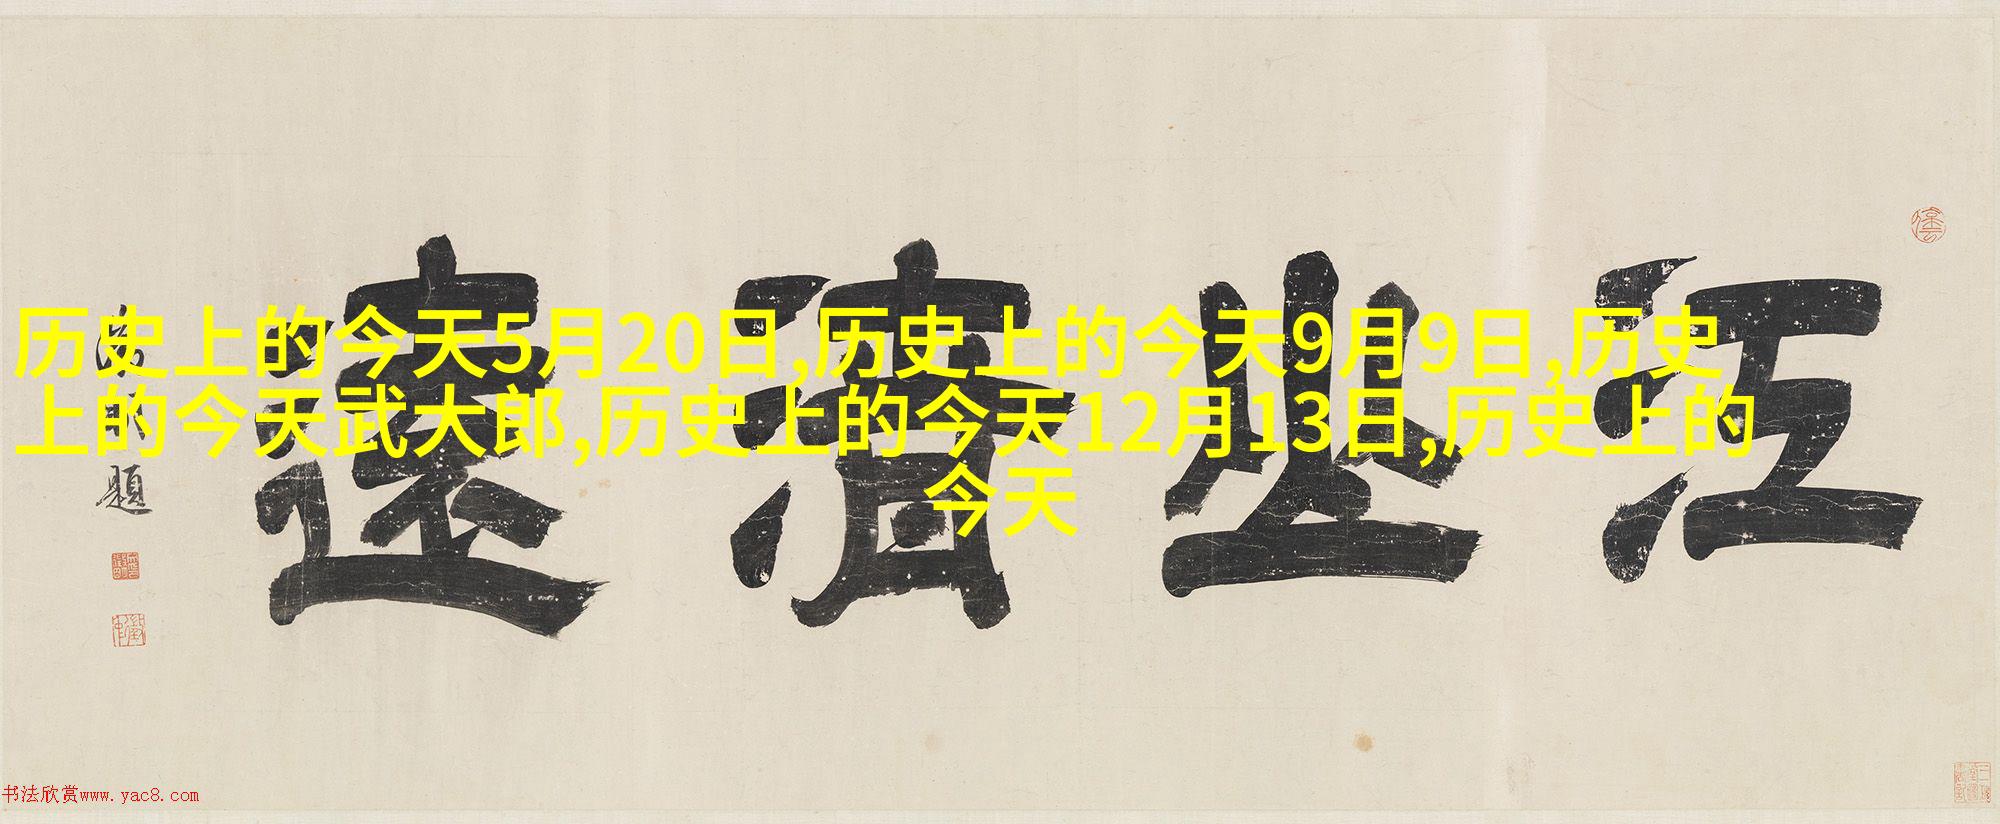 历史上的今天5月20日,历史上的今天9月9日,历史
上的今天武大郎,历史上的今天12月13日,历史上的
今天
江山清遠
題
书法欣赏www.yac8.com